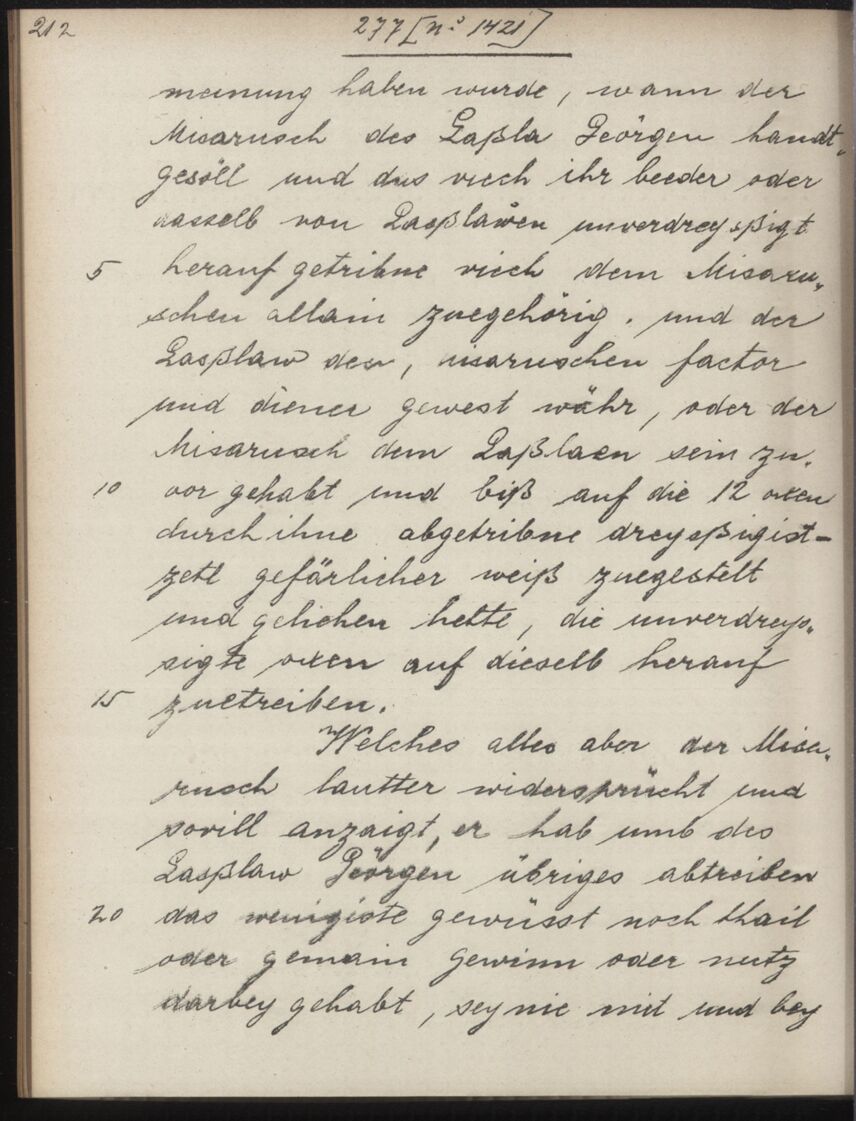 212
277 [nº 1421]
meinung haben wurde, wann der
Misarusch des Laßla Jeörgen handt„
gesöll und das viech ihr beeder oder
dasselb von Laßlawen unverdreyssßigt
5 herauf getribne viech dem Misaru„
schen allain zuegehörig. und der
Lasßlaw des, misaruschen factor
und diener gewest währ, oder der
Misarusch dem Laßlaen sein zu„
10 vor gehabt und biß auf die 12 oxen
durch ihne abgetribne dreyssßigist-
zetl gefärlicher weiß zuegestelt
und gelichen hette, die unverdreys„
sigte oxen auf dieselb herauf
15 zuetreiben.
Welches alles aber der Misa„
rusch lautter widersprücht und
sovill anzaigt, er hab umb des
Lasßlaw Jeörgen übriges abtreiben
20 das wenigiste gewüsst noch thail
oder gemain gewinn oder nutz
darbey gehabt, sey nie mit und bey